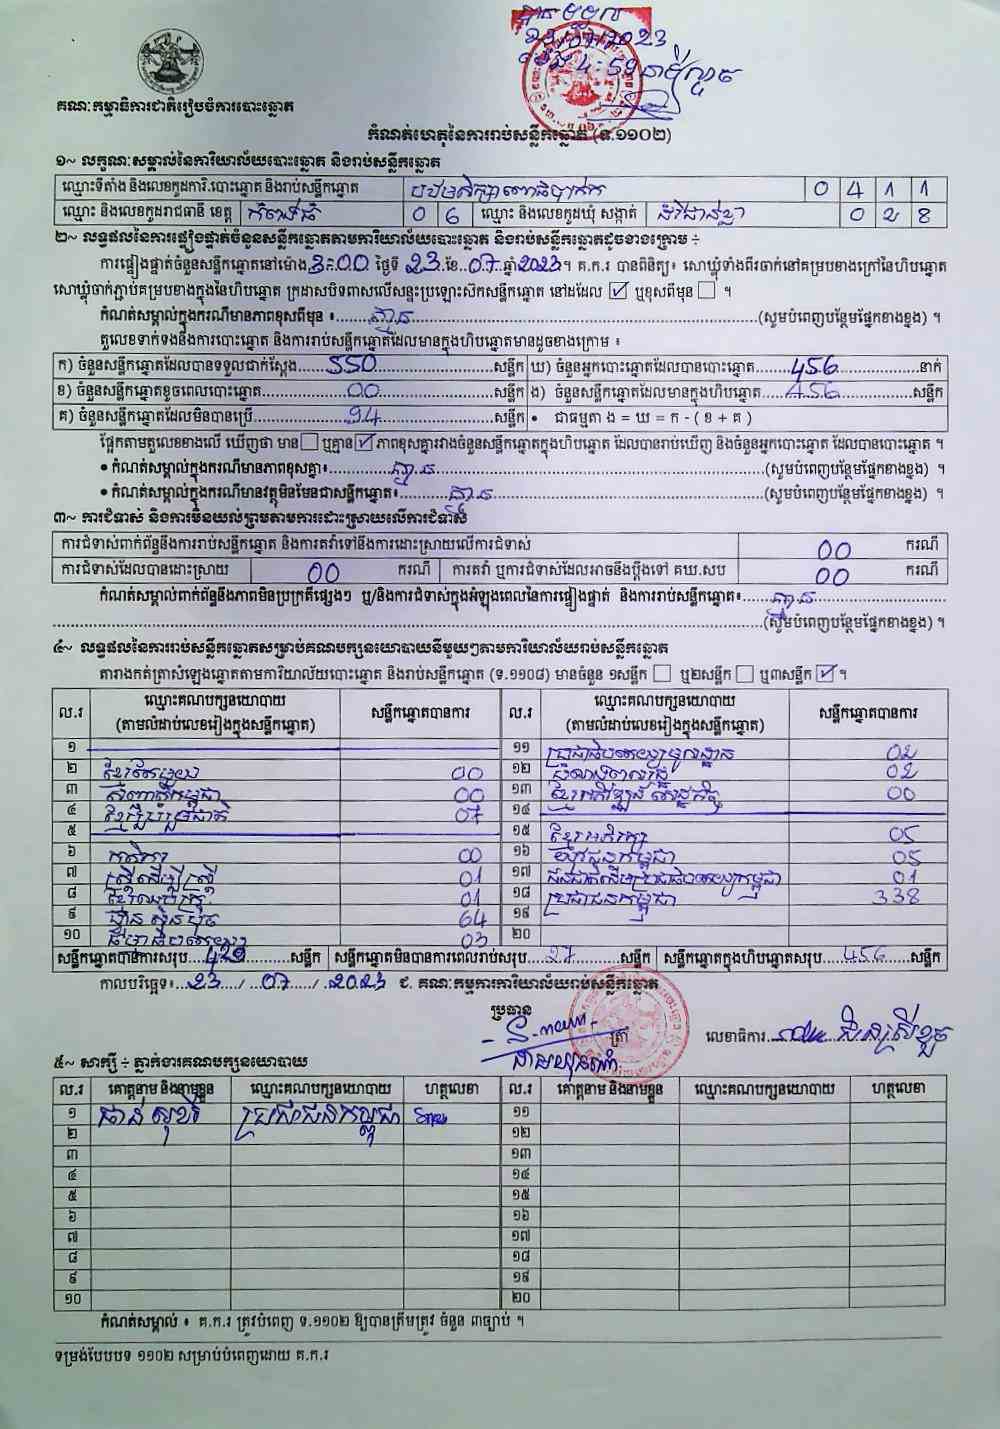 ២៣ ០៧ 2023
ម៉ោង 4:59 នាទីល្ងាច
គណៈកម្មាធិការជាតិរៀបចំការបោះឆ្នោត
កំណត់ហេតុនៃការរាប់សន្លឹកឆ្នោត (ទ.១១០២)
១~ លក្ខណៈសម្គាល់នៃការិយាល័យបោះឆ្នោត និងរាប់សន្លឹកឆ្នោត
ឈ្មោះទីតាំង និងលេខកូដការិ.បោះឆ្នោត និងរាប់សន្លឹកឆ្នោត បឋមសិក្សាពោធិ៍បាក់ក 0 4 1 1
ឈ្មោះ និងលេខកូដរាជធានី ខេត្ត កំពង់ធំ 0 6 ឈ្មោះ និងលេខកូដឃុំ សង្កាត់ ដំរីជាន់ខ្លា 0 2 8
២~ លទ្ធផលនៃការផ្ទៀងផ្ទាត់ចំនួនសន្លឹកឆ្នោតតាមការិយាល័យបោះឆ្នោត និងរាប់សន្លឹកឆ្នោតដូចខាងក្រោម ÷
ការផ្ទៀងផ្ទាត់ចំនួនសន្លឹកឆ្នោតនៅម៉ោង 3:00 ថ្ងៃទី 23 ខែ 07 ឆ្នាំ 2023 ។ គ.ក.រ បានពិនិត្យ៖ សោឃ្លុំទាំងពីរចាក់នៅគម្របខាងក្រៅនៃហិបឆ្នោត
សោឃ្លុំចាក់ភ្ជាប់គម្របខាងក្នុងនៃហិបឆ្នោត ក្រដាសបិទពាសលើសន្ទះប្រឡោះស៊កសន្លឹកឆ្នោត នៅដដែល ☑ ឬខុសពីមុន ☐ ។
កំណត់សម្គាល់ក្នុងករណីមានភាពខុសពីមុន ៖ គ្មាន (សូមបំពេញបន្ថែមផ្នែកខាងខ្នង) ។
តួលេខទាក់ទងនឹងការបោះឆ្នោត និងការរាប់សន្លឹកឆ្នោតដែលមានក្នុងហិបឆ្នោតមានដូចខាងក្រោម ៖
ក) ចំនួនសន្លឹកឆ្នោតដែលបានទទួលជាក់ស្តែង 550 សន្លឹក ឃ) ចំនួនអ្នកបោះឆ្នោតដែលបានបោះឆ្នោត 456 នាក់
ខ) ចំនួនសន្លឹកឆ្នោតខូចពេលបោះឆ្នោត 00 សន្លឹក ង) ចំនួនសន្លឹកឆ្នោតដែលមានក្នុងហិបឆ្នោត 456 សន្លឹក
គ) ចំនួនសន្លឹកឆ្នោតដែលមិនបានប្រើ 94 សន្លឹក • ជាធម្មតា ង = ឃ = ក - ( ខ + គ )
ផ្អែកតាមតួលេខខាងលើ ឃើញថា មាន ☐ ឬគ្មាន ☑ ភាពខុសគ្នារវាងចំនួនសន្លឹកឆ្នោតក្នុងហិបឆ្នោត ដែលបានរាប់ឃើញ និងចំនួនអ្នកបោះឆ្នោត ដែលបានបោះឆ្នោត ។
• កំណត់សម្គាល់ក្នុងករណីមានភាពខុសគ្នា៖ គ្មាន (សូមបំពេញបន្ថែមផ្នែកខាងខ្នង) ។
• កំណត់សម្គាល់ក្នុងករណីមានវត្ថុមិនមែនជាសន្លឹកឆ្នោត៖ គ្មាន (សូមបំពេញបន្ថែមផ្នែកខាងខ្នង) ។
៣~ ការជំទាស់ និងការមិនយល់ព្រមតាមការដោះស្រាយលើការជំទាស់
ការជំទាស់ពាក់ព័ន្ធនឹងការរាប់សន្លឹកឆ្នោត និងការតវ៉ាទៅនឹងការដោះស្រាយលើការជំទាស់ 00 ករណី
ការជំទាស់ដែលបានដោះស្រាយ 00 ករណី ការតវ៉ា ឬការជំទាស់ដែលអាចនឹងប្តឹងទៅ គឃ.សប 00 ករណី
កំណត់សម្គាល់ពាក់ព័ន្ធនឹងភាពមិនប្រក្រតីផ្សេងៗ ឬ/និងការជំទាស់ក្នុងអំឡុងពេលនៃការផ្ទៀងផ្ទាត់ និងការរាប់សន្លឹកឆ្នោត៖ គ្មាន
(សូមបំពេញបន្ថែមផ្នែកខាងខ្នង) ។
៤~ លទ្ធផលនៃការរាប់សន្លឹកឆ្នោតសម្រាប់គណបក្សនយោបាយនីមួយៗតាមការិយាល័យរាប់សន្លឹកឆ្នោត
តារាងកត់ត្រាសំឡេងឆ្នោតតាមការិយាល័យបោះឆ្នោត និងរាប់សន្លឹកឆ្នោត (ទ.១១០៨) មានចំនួន ១សន្លឹក ☐ ឬ២សន្លឹក ☐ ឬ៣សន្លឹក ☑ ។
ល.រ ឈ្មោះគណបក្សនយោបាយ (តាមលំដាប់លេខរៀងក្នុងសន្លឹកឆ្នោត) សន្លឹកឆ្នោតបានការ ល.រ ឈ្មោះគណបក្សនយោបាយ (តាមលំដាប់លេខរៀងក្នុងសន្លឹកឆ្នោត) សន្លឹកឆ្នោតបានការ
១ ១១ ប្រជាធិបតេយ្យមូលដ្ឋាន 02
២ ខ្មែរតែមួយ 00 ១២ សំបុកឃ្មុំ 02
៣ សញ្ជាតិកម្ពុជា 00 ១៣ ខ្មែរអភិវឌ្ឍន៍សេដ្ឋកិច្ច 00
៤ ខ្មែររួបរួមជាតិ 07 ១៤
៥ ១៥ ខ្មែរអភិរក្ស 05
៦ កសិករ 00 ១៦ យុវជនកម្ពុជា 05
៧ ស្រ្តីដើម្បីស្រ្តី 01 ១៧ ជនជាតិដើមប្រជាធិបតេយ្យកម្ពុជា 01
៨ 01 ១៨ ប្រជាជនកម្ពុជា 338
៩ ហ្វ៊ុនស៊ិនប៉ិច 64 ១៩
១០ ធម្មាធិបតេយ្យ 03 ២០
សន្លឹកឆ្នោតបានការសរុប 429 សន្លឹក សន្លឹកឆ្នោតមិនបានការពេលរាប់សរុប 27 សន្លឹក សន្លឹកឆ្នោតក្នុងហិបឆ្នោតសរុប 456 សន្លឹក
កាលបរិច្ឆេទ៖ 23 / 07 / 2023 ជ. គណៈកម្មការការិយាល័យរាប់សន្លឹកឆ្នោត
ប្រធាន
ត្រា លេខាធិការ
៥~ សាក្សី ÷ ភ្នាក់ងារគណបក្សនយោបាយ
ល.រ គោត្តនាម និងនាមខ្លួន ឈ្មោះគណបក្សនយោបាយ ហត្ថលេខា ល.រ គោត្តនាម និងនាមខ្លួន ឈ្មោះគណបក្សនយោបាយ ហត្ថលេខា
១ ផាន់ សុខរី ប្រជាជនកម្ពុជា ១១
២ ១២
៣ ១៣
៤ ១៤
៥ ១៥
៦ ១៦
៧ ១៧
៨ ១៨
៩ ១៩
១០ ២០
កំណត់សម្គាល់ ៖ គ.ក.រ ត្រូវបំពេញ ទ.១១០២ ឱ្យបានត្រឹមត្រូវ ចំនួន ៣ច្បាប់ ។
ទម្រង់បែបបទ ១១០២ សម្រាប់បំពេញដោយ គ.ក.រ